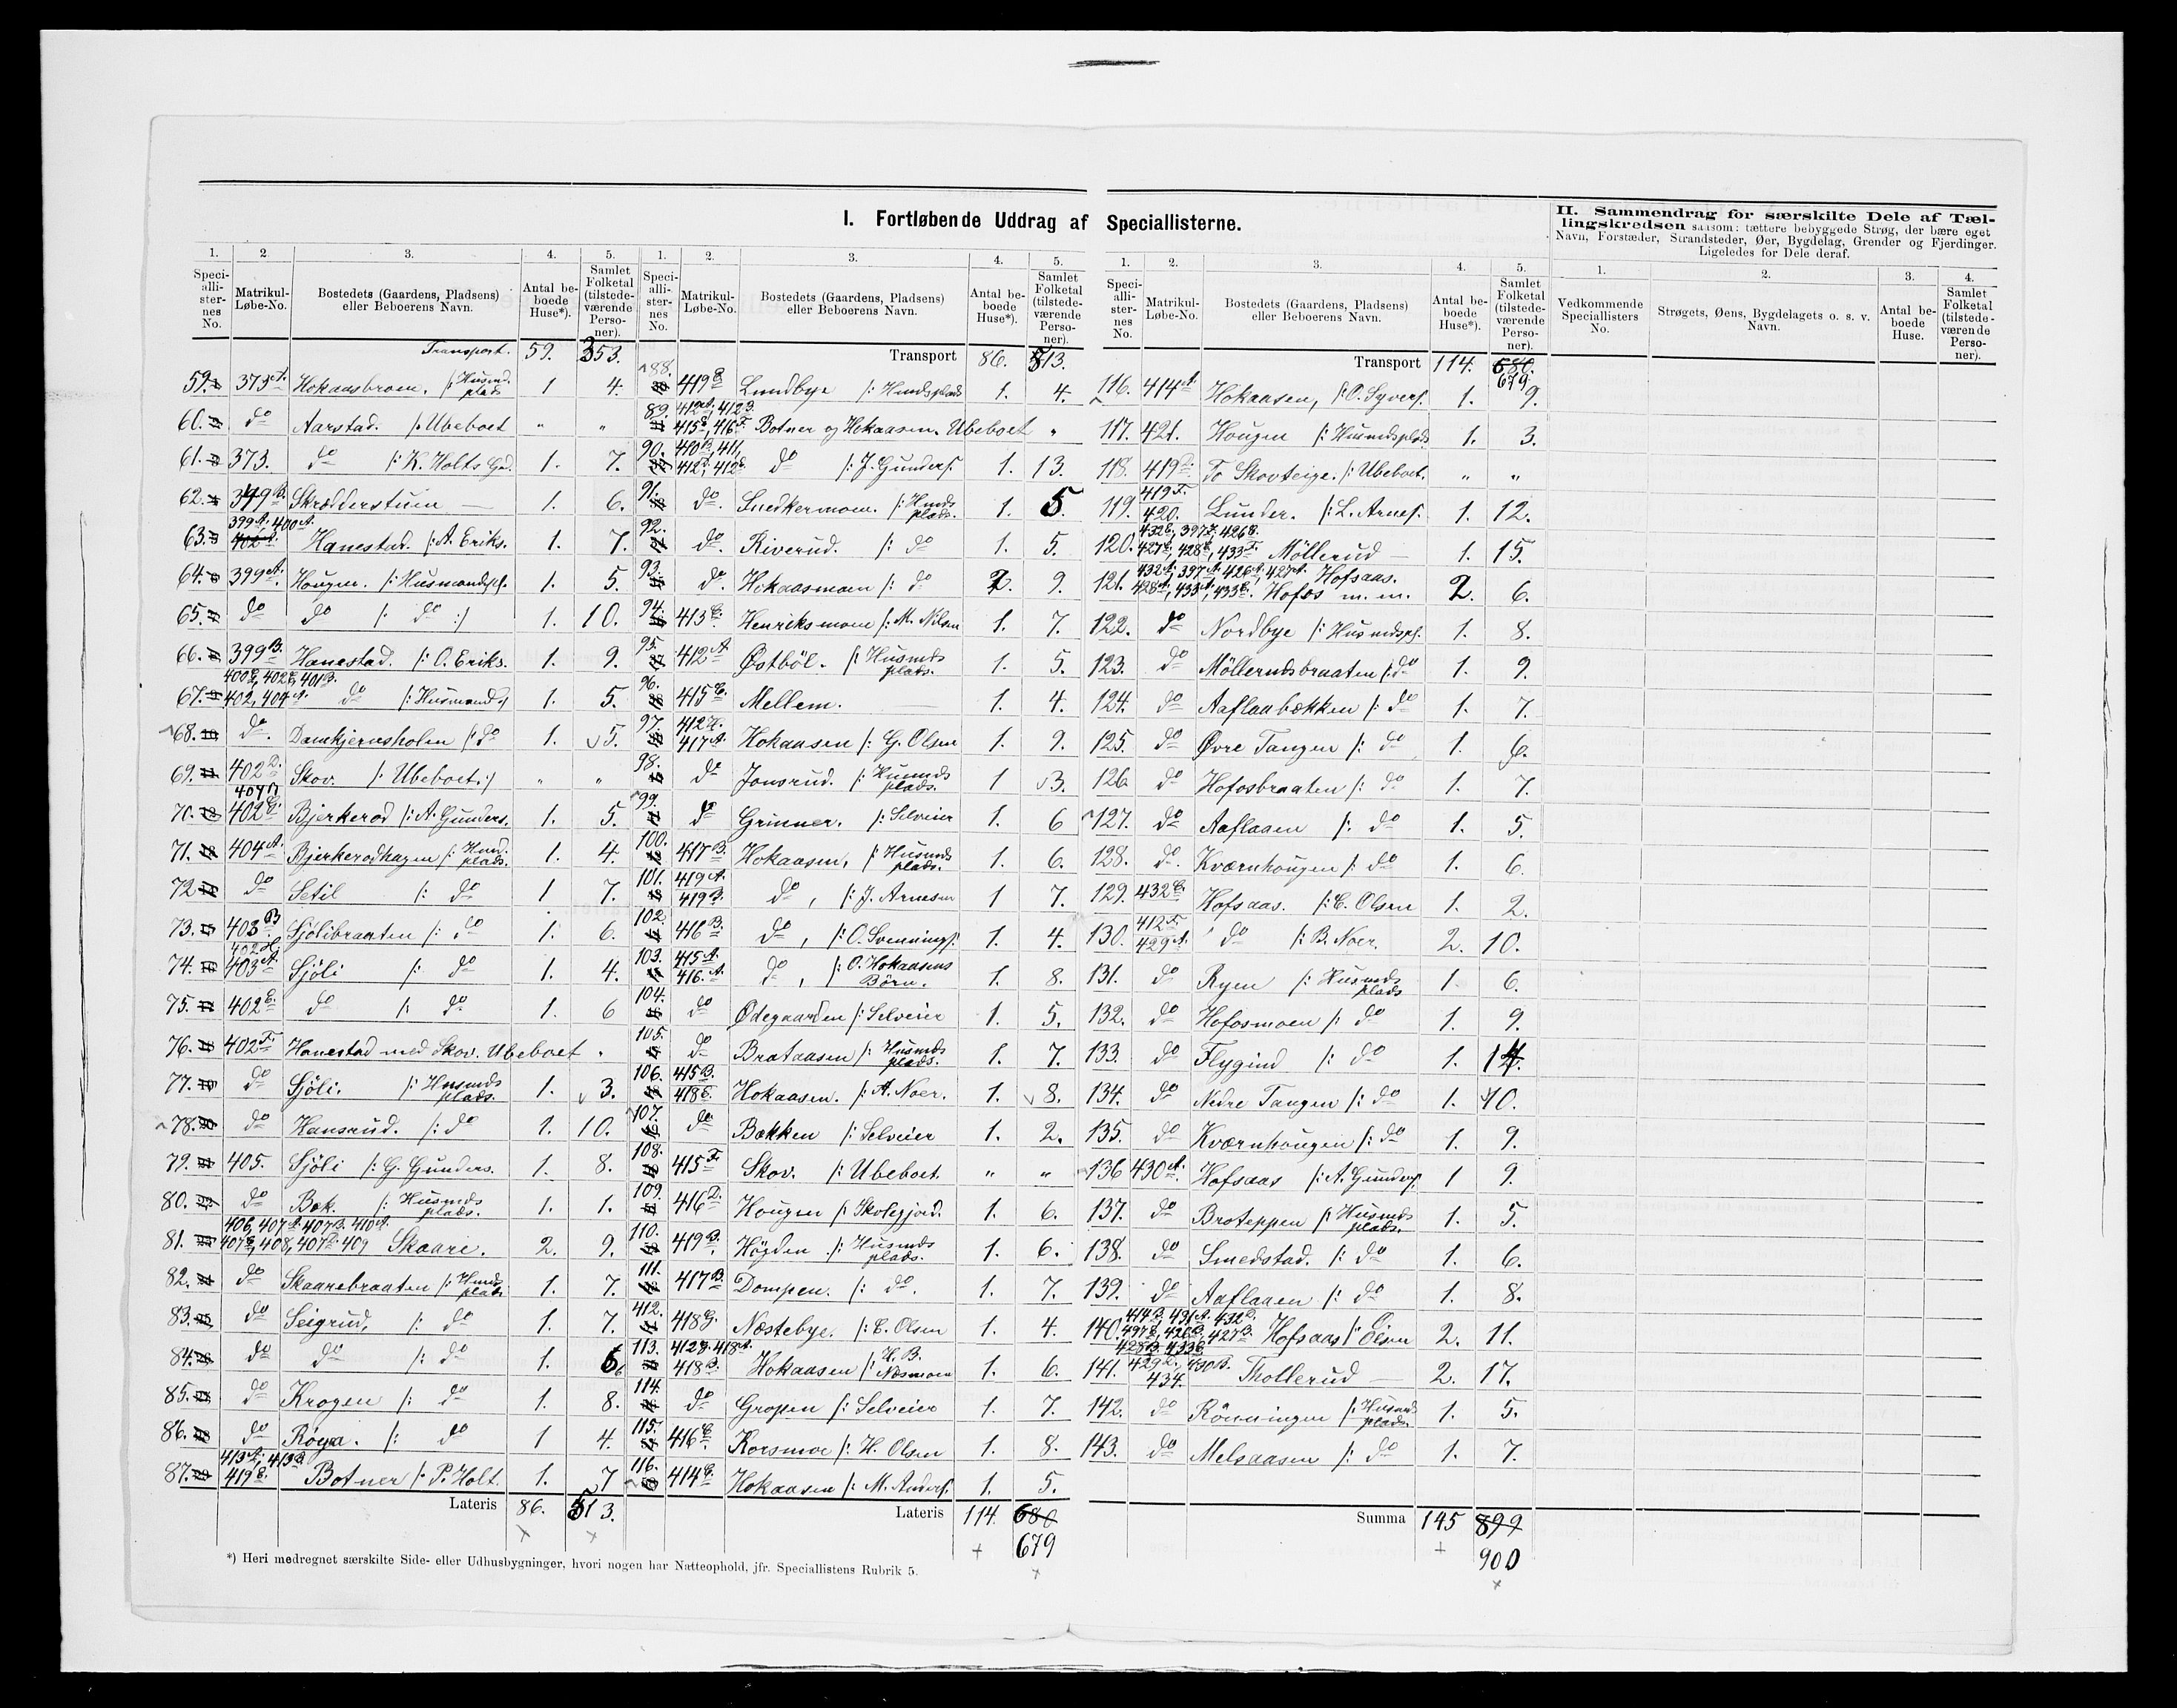 I. Fortløbende Uddrag af Speciallisterne.
II. Sammendrag for særskilte Dele af Tæl-
lingskredsen saasom: tættere bebyggede Strøg, der bære eget
Navn, Forstæder, Strandsteder, Øer, Bygdelag, Grender og Fjerdinger.
Ligeledes for Dele deraf.
1. 2. 3. 4. 5.
Speci-alli-ster-nes No. Matrikul-Løbe-No. Bostedets (Gaardens, Pladsens) eller Beboerens Navn. Antal be-boede Huse*). Samlet Folketal (tilstede-værende Perso-ner).
Transport. 59. 353.
59. 373 A. Hokaasbroen. /: Husmd. plads 1 4.
60. do Aarstad. /: Ubeboet " "
61. 373. do /: K. Holts Gd. 1. 7.
62. 399 B. Skrædderstuen — 1. 6.
63. 399 A. 400 A. Hanestad. /: A. Eriks. 1. 7.
64. 399 A. Hougen. /: Husmandspl. 1. 5.
65. do do /: do :/ 1. 10.
66. 399 B. Hanestad. /: O. Eriks. 1. 9.
67. 402, 404 A. do /: Husmands :/ 1. 5.
68. do. Damkjernsholen /: do 1. 5.
69. 402 D. Skov. /: Ubeboet. :/ " "
70. 402 Bjerkerod /: A. Gunders. 1. 5.
71. 404 A. Bjerkerodhagen /: Husmd. plads. 1. 4.
72 do Setil /: do 1 7.
73. 403 B Sjölibraaten /: do 1. 6.
74. 402 H. 403 A. Sjöli /: do 1. 4.
75. 402 do /: do 1. 6
76. 402 F. Hanestad med Skov. Ubeboet "
77. do Sjöli. /: Husmds plads. 1. 3.
78. do Hansrud. /: do 1. 10.
79. 405. Sjöli /: G. Gunders. 1. 8.
80. do Bek. /: Husmds plads. 1. 1.
81. 406, 407 A. 407 B. 410 A. 408, 407 D. 409 Skaare. 2. 9.
82. do Skaarebraaten /: Husmds plads. 1. 7.
83. do Seigrud, /: do 1. 7.
84. do do /: do 1. 6
85. do Krogen /: do 1. 8.
86. do Røya. /: do 1 4.
87. 413 A., 413 B. 419 Botner /: P. Holt. 1. 7
Lateris 86. 513.
1. 2. 3. 4. 5.
Speci-alli-ster-nes No. Matrikul-Løbe-No. Bostedets (Gaardens, Pladsens) eller Beboerens Navn. Antal be-boede Huse*). Samlet Folketal (tilstede-værende Perso-ner).
Transport 86. 513.
88. 419 Lundbye /: Husmdsplads 1. 4.
89. 412 A, 412 415 416 F. Botner og Hokaasen. Ubeboet "
90. 410 B, 411, 412 412 do /: J. Gunders. 1. 13.
91. do. Snedkermoen. /: Husmds plads. 1. 5.
92. do. Riverud. /: do 1. 5.
93. do. Hokaasmoen /: do 2. 9.
94. 413 Henriksmoen /: M. Nilsen 1. 7.
95. 412 A Østböl. /: Husmds plads. 1. 5.
96. 415 Mellem. 1. 4.
97. 412 417 A. Hokaasen /: G. Olsen 1. 9.
98. do Jonsrud. /: Husmds plads. 1 3.
99. do Grinner. /: Selveier 1. 6
100. 417 B. Hokaasen, /: Husmds plads. 1. 6.
101. 419 A. 419 B. do, /: J. Arnesen 1 7.
102. 416 B. do, /: O. Svennings. 1. 4.
103. 415 A. 416 A. do, /: O. Hokaasens Börn. 1. 8.
104. do Ödegaarden /: Selveier 1. 5.
105. do Brataasen /: Husmds plads. 1. 7.
106. 415 B. 418 Hokaasen. /: A. Noer. 1. 8.
107. do Bakken /: Selveier 1. 2.
108. 415 F. Skov. /: Ubeboet. " "
109. 416 D. Hougen /: Skolegjord. 1. 6.
110. 419 B. Högden /: Husmds plads. 1. 6.
111. 417 B. Dompen. /: do. 1. 7.
112. 418 G. Nestebye. /: C. Olsen 1. 4.
113. 412 418 A. 418 B. Hokaasen /: H. B. Nesmoen 1. 6.
114. do Gropen /: Selveier 1. 7.
115. 416 Korsmoe /: H. Olsen 1. 8.
116. 414 Hokaasen /: M. Anders. 1. 5.
Lateris 114. 680
679
1. 2. 3. 4. 5.
Speci-alli-ster-nes No. Matrikul-Løbe-No. Bostedets (Gaardens, Pladsens) eller Beboerens Navn. Antal be-boede Huse*). Samlet Folketal (tilstede-værende Perso-ner).
Transport 114. 680.
679
116. 414 A Hokaasen, /: O. Syvers. 1. 9.
117. 421. Hougen /: Husmdsplads 1. 3.
118. 419 D. To Skovteige. /: Ubeboet. " "
119. 419 F. 420. Lunder. /: L. Arnes. 1. 12.
120. 432, 397, 426 427, 428, 433 F. Möllerud — 1. 15.
121. 432 A, 397 A. 426 A, 427 A. 428 A, 433 A, 433 Hofsaas. Hofos m. m. 2. 6.
122. do Nordbye /: Husmdspl. 1. 8.
123. do Möllerudsbraaten /: do 1. 9.
124. do Aaflaabekken /: do 1. 7.
125. do Øvre Tangen /: do 1. 6.
126. do Hofosbraaten /: do 1. 7.
127. do Aaflaaen /: do 1. 5.
128. do. Kværnhougen /: do 1. 6.
129. 432 Hofsaas. /: C. Olsen 1. 2.
130. 412 F. 429 A. do /: B. Noer. 2. 10.
131. do Ryen /: Husmds plads 1. 6.
132. do Hofosmoen /: do 1. 9.
133. do Flygind /: do 1. 14.
134. do Nedre Tangen /: do 1. 10.
135. do Kværnhougen /: do 1. 9.
136 430 A. Hofsaas /: A. Gunders. 1 9.
137. do Broteppen /: Husmds plads. 1. 5.
138. do Smedstad. /: do 1. 6.
139. do Aaflaaen /: do 1. 8.
140. 414 B, 431 A. 432 D. 427 B. Hofsaas /: O. Olsen 2. 11.
141. 429 430 B. 434. Thollerud — 2. 17.
142. do Rönningen /: Husmds plads. 1. 5.
143. do Melsaasen /: do 1. 7.
Summa 145 899
900
1. 2. 3. 4.
Vedkommende Speciallisters No. Strøgets, Øens, Bygdelagets o. s. v. Navn. Antal be-boede Huse. Samlet Folketal (tilstede-værende Perso-ner).
*) Heri medregnet særskilte Side- eller Udhusbygninger, hvori nogen har Natteophold, jfr. Speciallistens Rubrik 5.